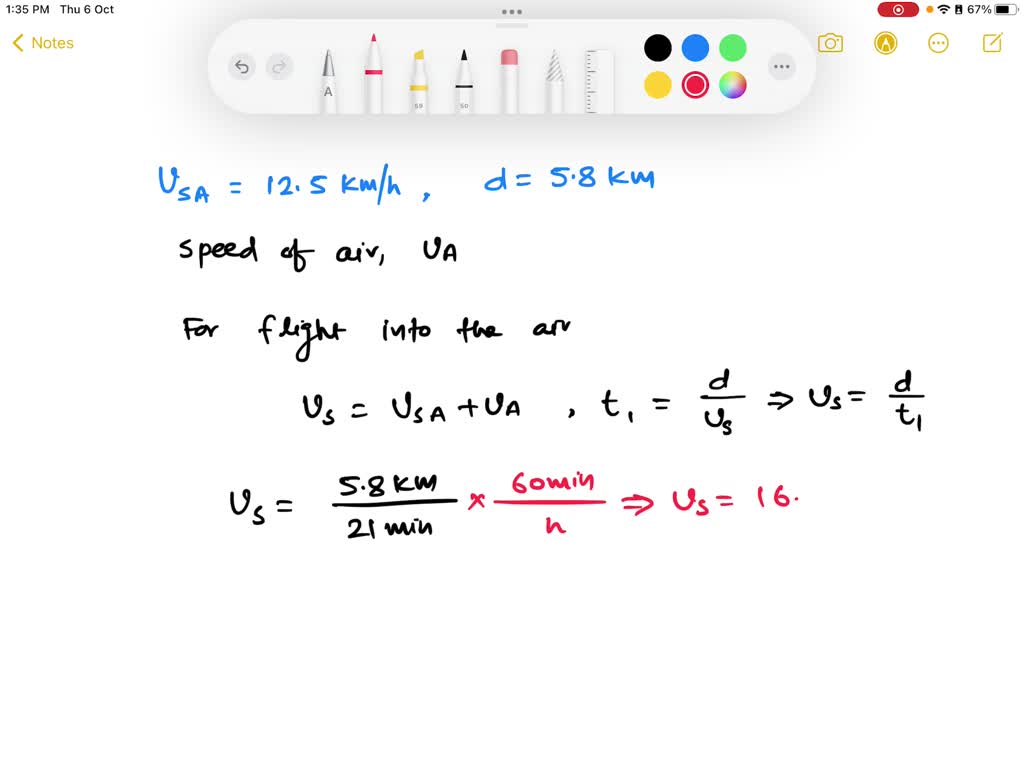 1:35 PM Thu 6 Oct 67%
Notes
A 59 50
υSA = 12.5 km/h, d = 5.8 km
speed of air, υA
For flight into the air
υs = υSA + υA , t1 = d/υs ⇒ υs = d/t1
υs = 5.8 km/21 min × 60 min/h ⇒ υs = 16.